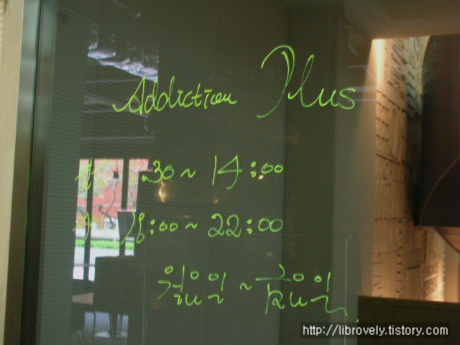 Addiction Plus
:30 ~ 14:00
18:00 ~ 22:00
월요일 ~ 금요일
http://librovely.tistory.com